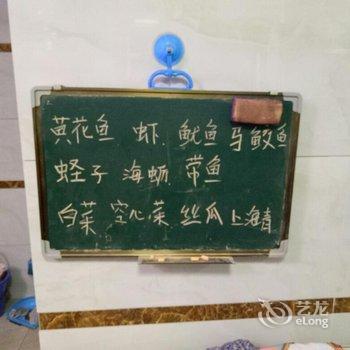 黄花鱼 虾 鱿鱼 马鲛鱼
蛏子 海蛎 带鱼
白菜 空心菜 丝瓜 上海青
艺龙
eLong